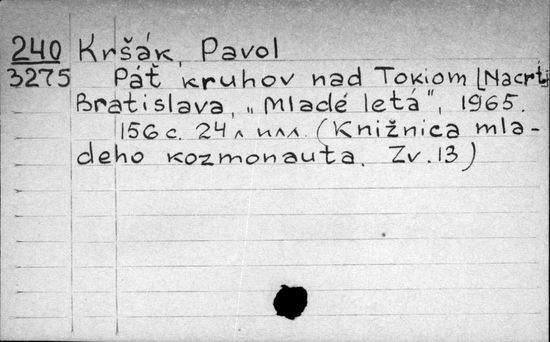 240 Kršák, Pavol
3275 Páť kruhov nad Tokiom [Nacrti
Bratislava, „Mladé letá", 1965.
156 с. 24 л илл. (Knižnica mla-
deho kozmonauta. Zv. 13)